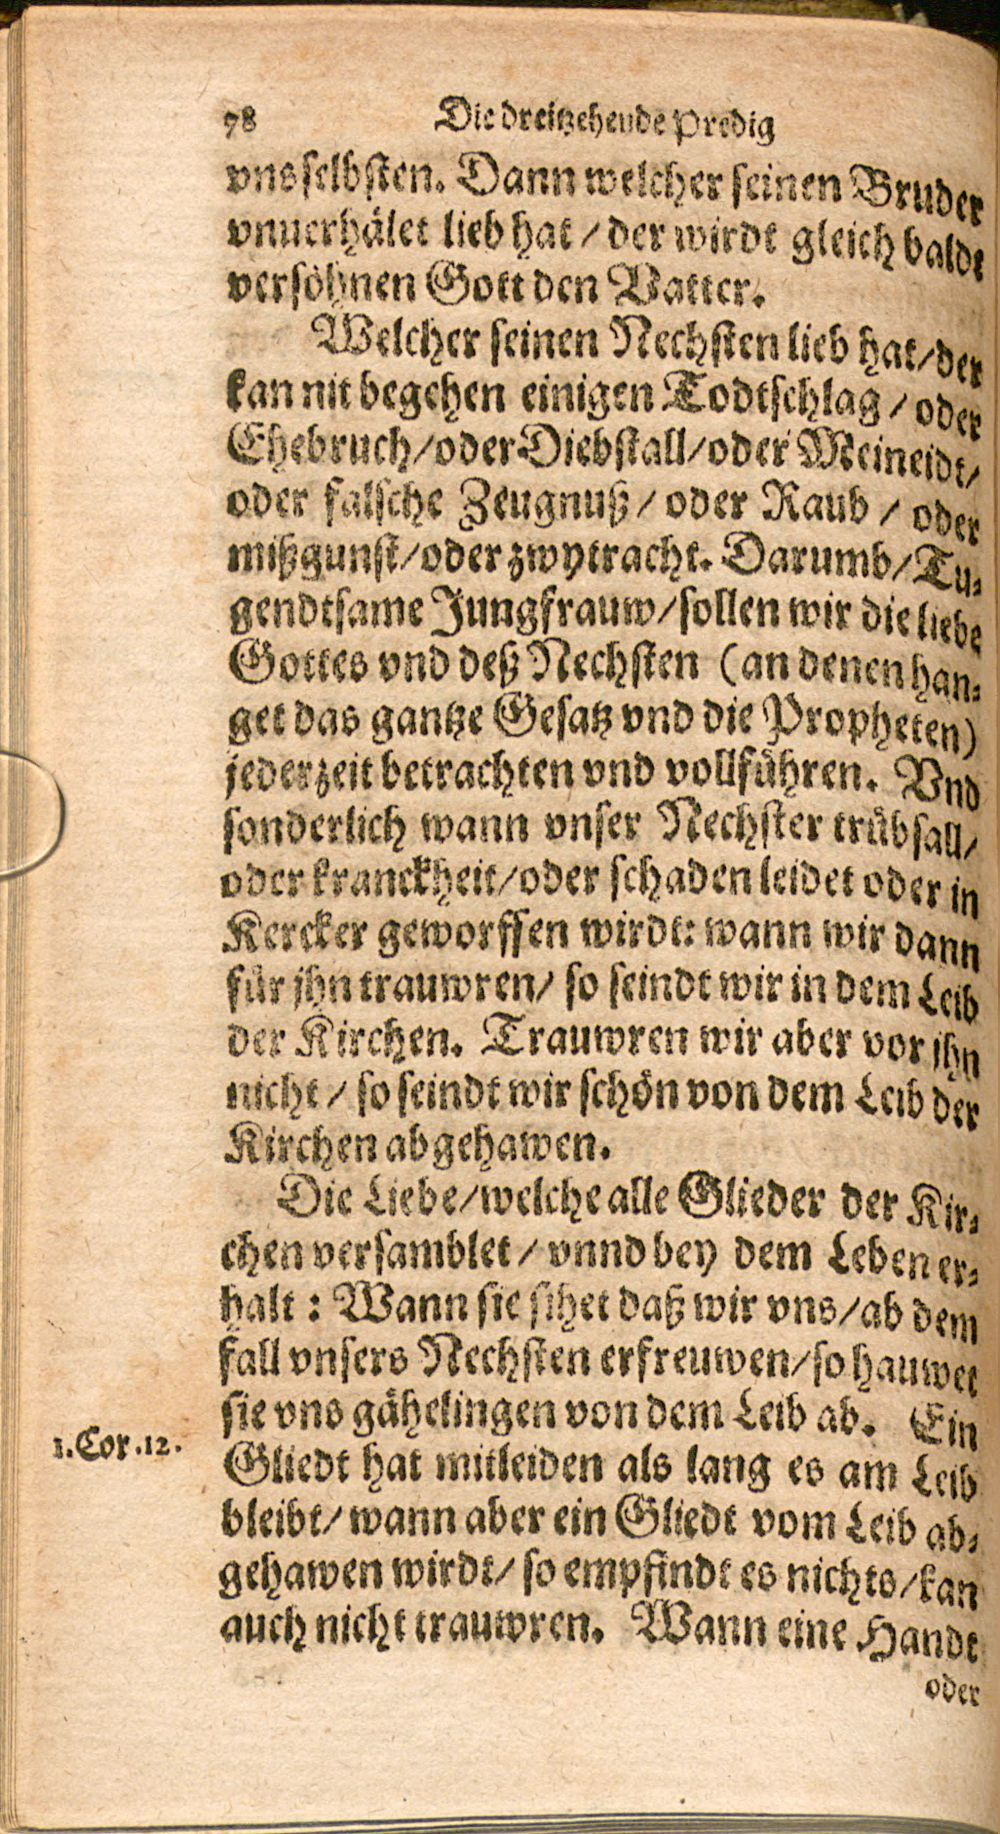 78 Die dreitzehende Predig
vns selbsten. Dann welcher seinen Bruder
vnuerhälet lieb hat / der wirdt gleich baldt
versöhnen Gott den Vatter.
Welcher seinen Nechsten lieb hat / der
kan nit begehen einigen Todtschlag / oder
Ehebruch / oder Diebstall / oder Meineidt /
oder falsche Zeugnuß / oder Raub / oder
mißgunst / oder zwytracht. Darumb / Tu⸗
gendtsame Jungfrauw / sollen wir die liebe
Gottes vnd deß Nechsten (an denen han⸗
get das gantze Gesatz vnd die Propheten)
jederzeit betrachten vnd vollführen. Vnd
sonderlich wann vnser Nechster trübsall /
oder kranckheit / oder schaden leidet oder in
Kercker geworffen wirdt: wann wir dann
für jhn trauwren / so seindt wir in dem Leib
der Kirchen. Trauwren wir aber vor jhn
nicht / so seindt wir schön von dem Leib der
Kirchen abgehawen.
Die Liebe / welche alle Glieder der Kir⸗
chen versamblet / vnnd bey dem Leben er⸗
halt: Wann sie sihet daß wir vns / ab dem
fall vnsers Nechsten erfreuwen / so hauwet
sie vns gähelingen von dem Leib ab. Ein
1. Cor. 12.
Gliedt hat mitleiden als lang es am Leib
bleibt / wann aber ein Gliedt vom Leib ab⸗
gehawen wirdt / so empfindt es nichts / kan
auch nicht trauwren. Wann eine Handt
oder